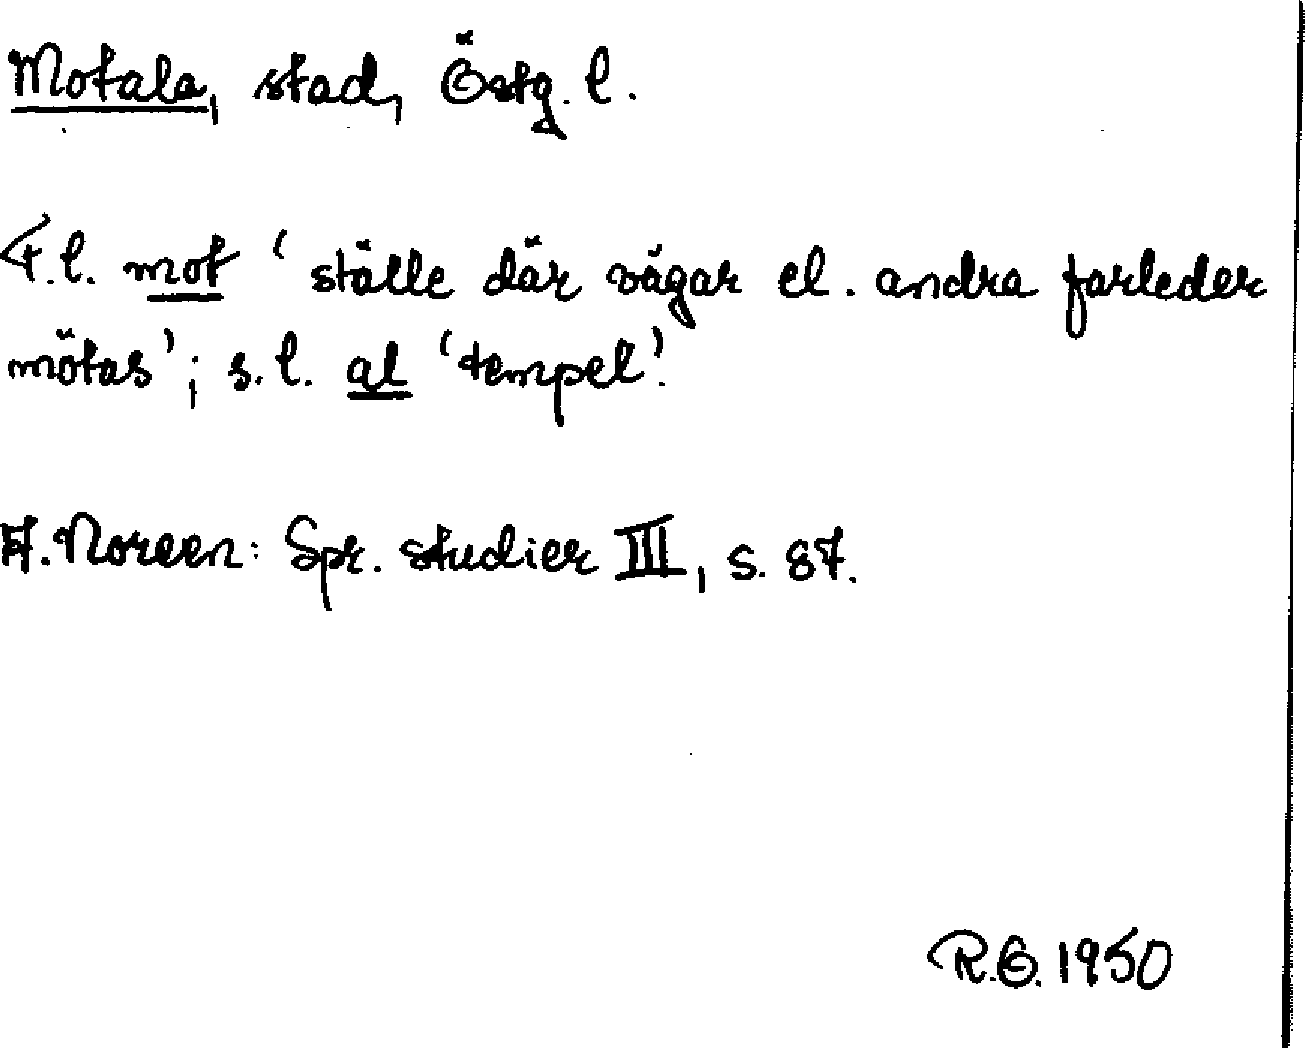 Motala, stad, Östg. l.
F.l. mot 'ställe där vägar el. andra farleder
mötas'; s.l. al 'tempel'.
A. Noreen: Spr. studier III, s. 87.
R.Ö. 1950